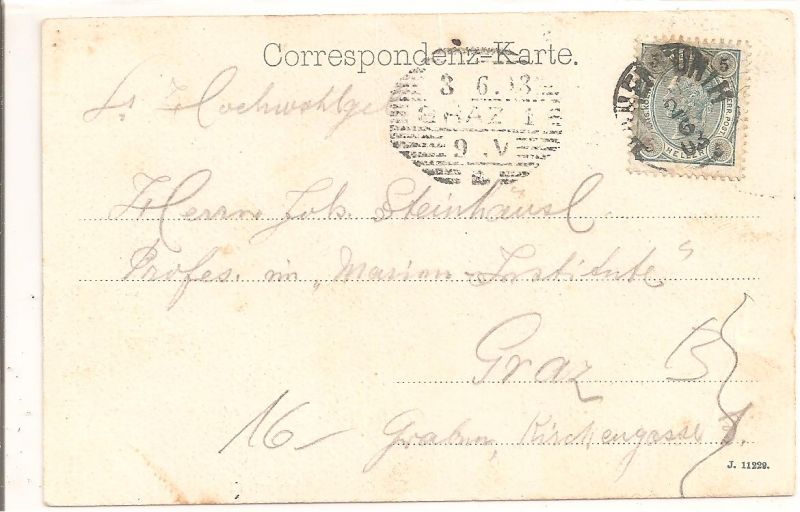 Correspondenz-Karte.
Sr Hochwohlgeb
3 6.03
GRAZ 1
9.V
5 5
HELLER
Herrn Joh. Steinhäusl
Profes. im „Marien-Institute"
Graz
16-
Graben, Kirchengasse 1.
J. 11229.